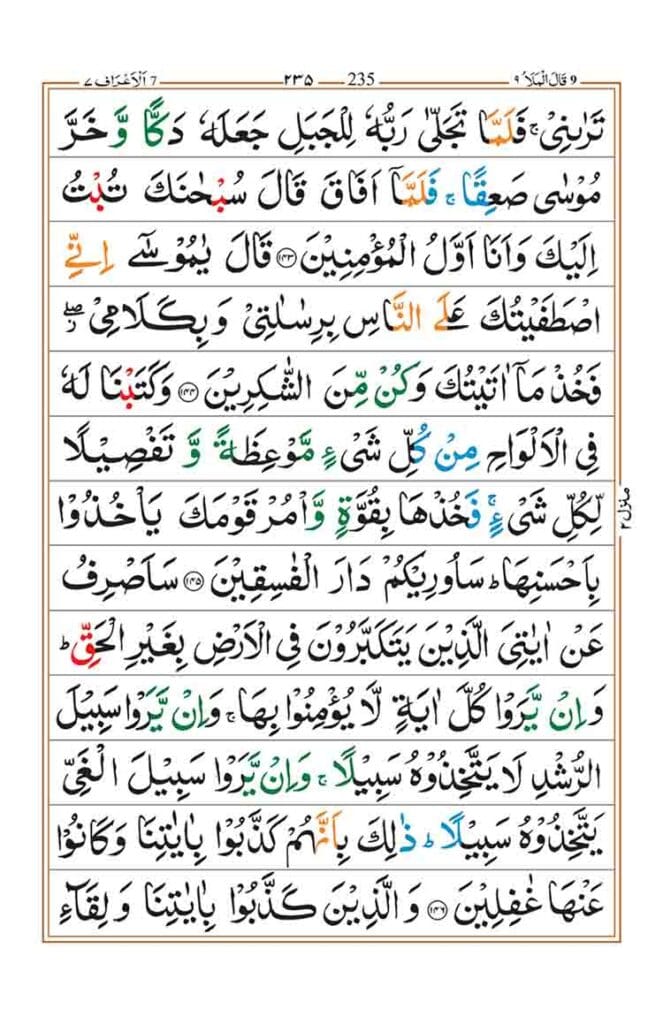 ٩ قَالَ الْمَلَاُ 9 235 ٢٣٥ 7 اَلْاَعْرَاف ٧
تَرٰىنِیْ ۚ فَلَمَّا تَجَلّٰی رَبُّهٗ لِلْجَبَلِ جَعَلَهٗ دَكًّا وَّ خَرَّ
مُوْسٰی صَعِقًا ۚ فَلَمَّاۤ اَفَاقَ قَالَ سُبْحٰنَكَ تُبْتُ
اِلَیْكَ وَ اَنَا اَوَّلُ الْمُؤْمِنِیْنَ ﴿۱۴۳﴾ قَالَ یٰمُوْسٰۤی اِنِّی
اصْطَفَیْتُكَ عَلَی النَّاسِ بِرِسٰلٰتِیْ وَ بِكَلَامِیْ ۖؗ
فَخُذْ مَاۤ اٰتَیْتُكَ وَ كُنْ مِّنَ الشّٰكِرِیْنَ ﴿۱۴۴﴾ وَ كَتَبْنَا لَهٗ
فِی الْاَلْوَاحِ مِنْ كُلِّ شَیْءٍ مَّوْعِظَةً وَّ تَفْصِیْلًا
لِّكُلِّ شَیْءٍ ۚ فَخُذْهَا بِقُوَّةٍ وَّ اْمُرْ قَوْمَكَ یَاْخُذُوْا
بِاَحْسَنِهَا ؕ سَاُورِیْكُمْ دَارَ الْفٰسِقِیْنَ ﴿۱۴۵﴾ سَاَصْرِفُ
عَنْ اٰیٰتِیَ الَّذِیْنَ یَتَكَبَّرُوْنَ فِی الْاَرْضِ بِغَیْرِ الْحَقِّ ؕ
وَ اِنْ یَّرَوْا كُلَّ اٰیَةٍ لَّا یُؤْمِنُوْا بِهَا ۚ وَ اِنْ یَّرَوْا سَبِیْلَ
الرُّشْدِ لَا یَتَّخِذُوْهُ سَبِیْلًا ۚ وَ اِنْ یَّرَوْا سَبِیْلَ الْغَیِّ
یَتَّخِذُوْهُ سَبِیْلًا ؕ ذٰلِكَ بِاَنَّهُمْ كَذَّبُوْا بِاٰیٰتِنَا وَ كَانُوْا
عَنْهَا غٰفِلِیْنَ ﴿۱۴۶﴾ وَ الَّذِیْنَ كَذَّبُوْا بِاٰیٰتِنَا وَ لِقَآءِ
منزل ٢